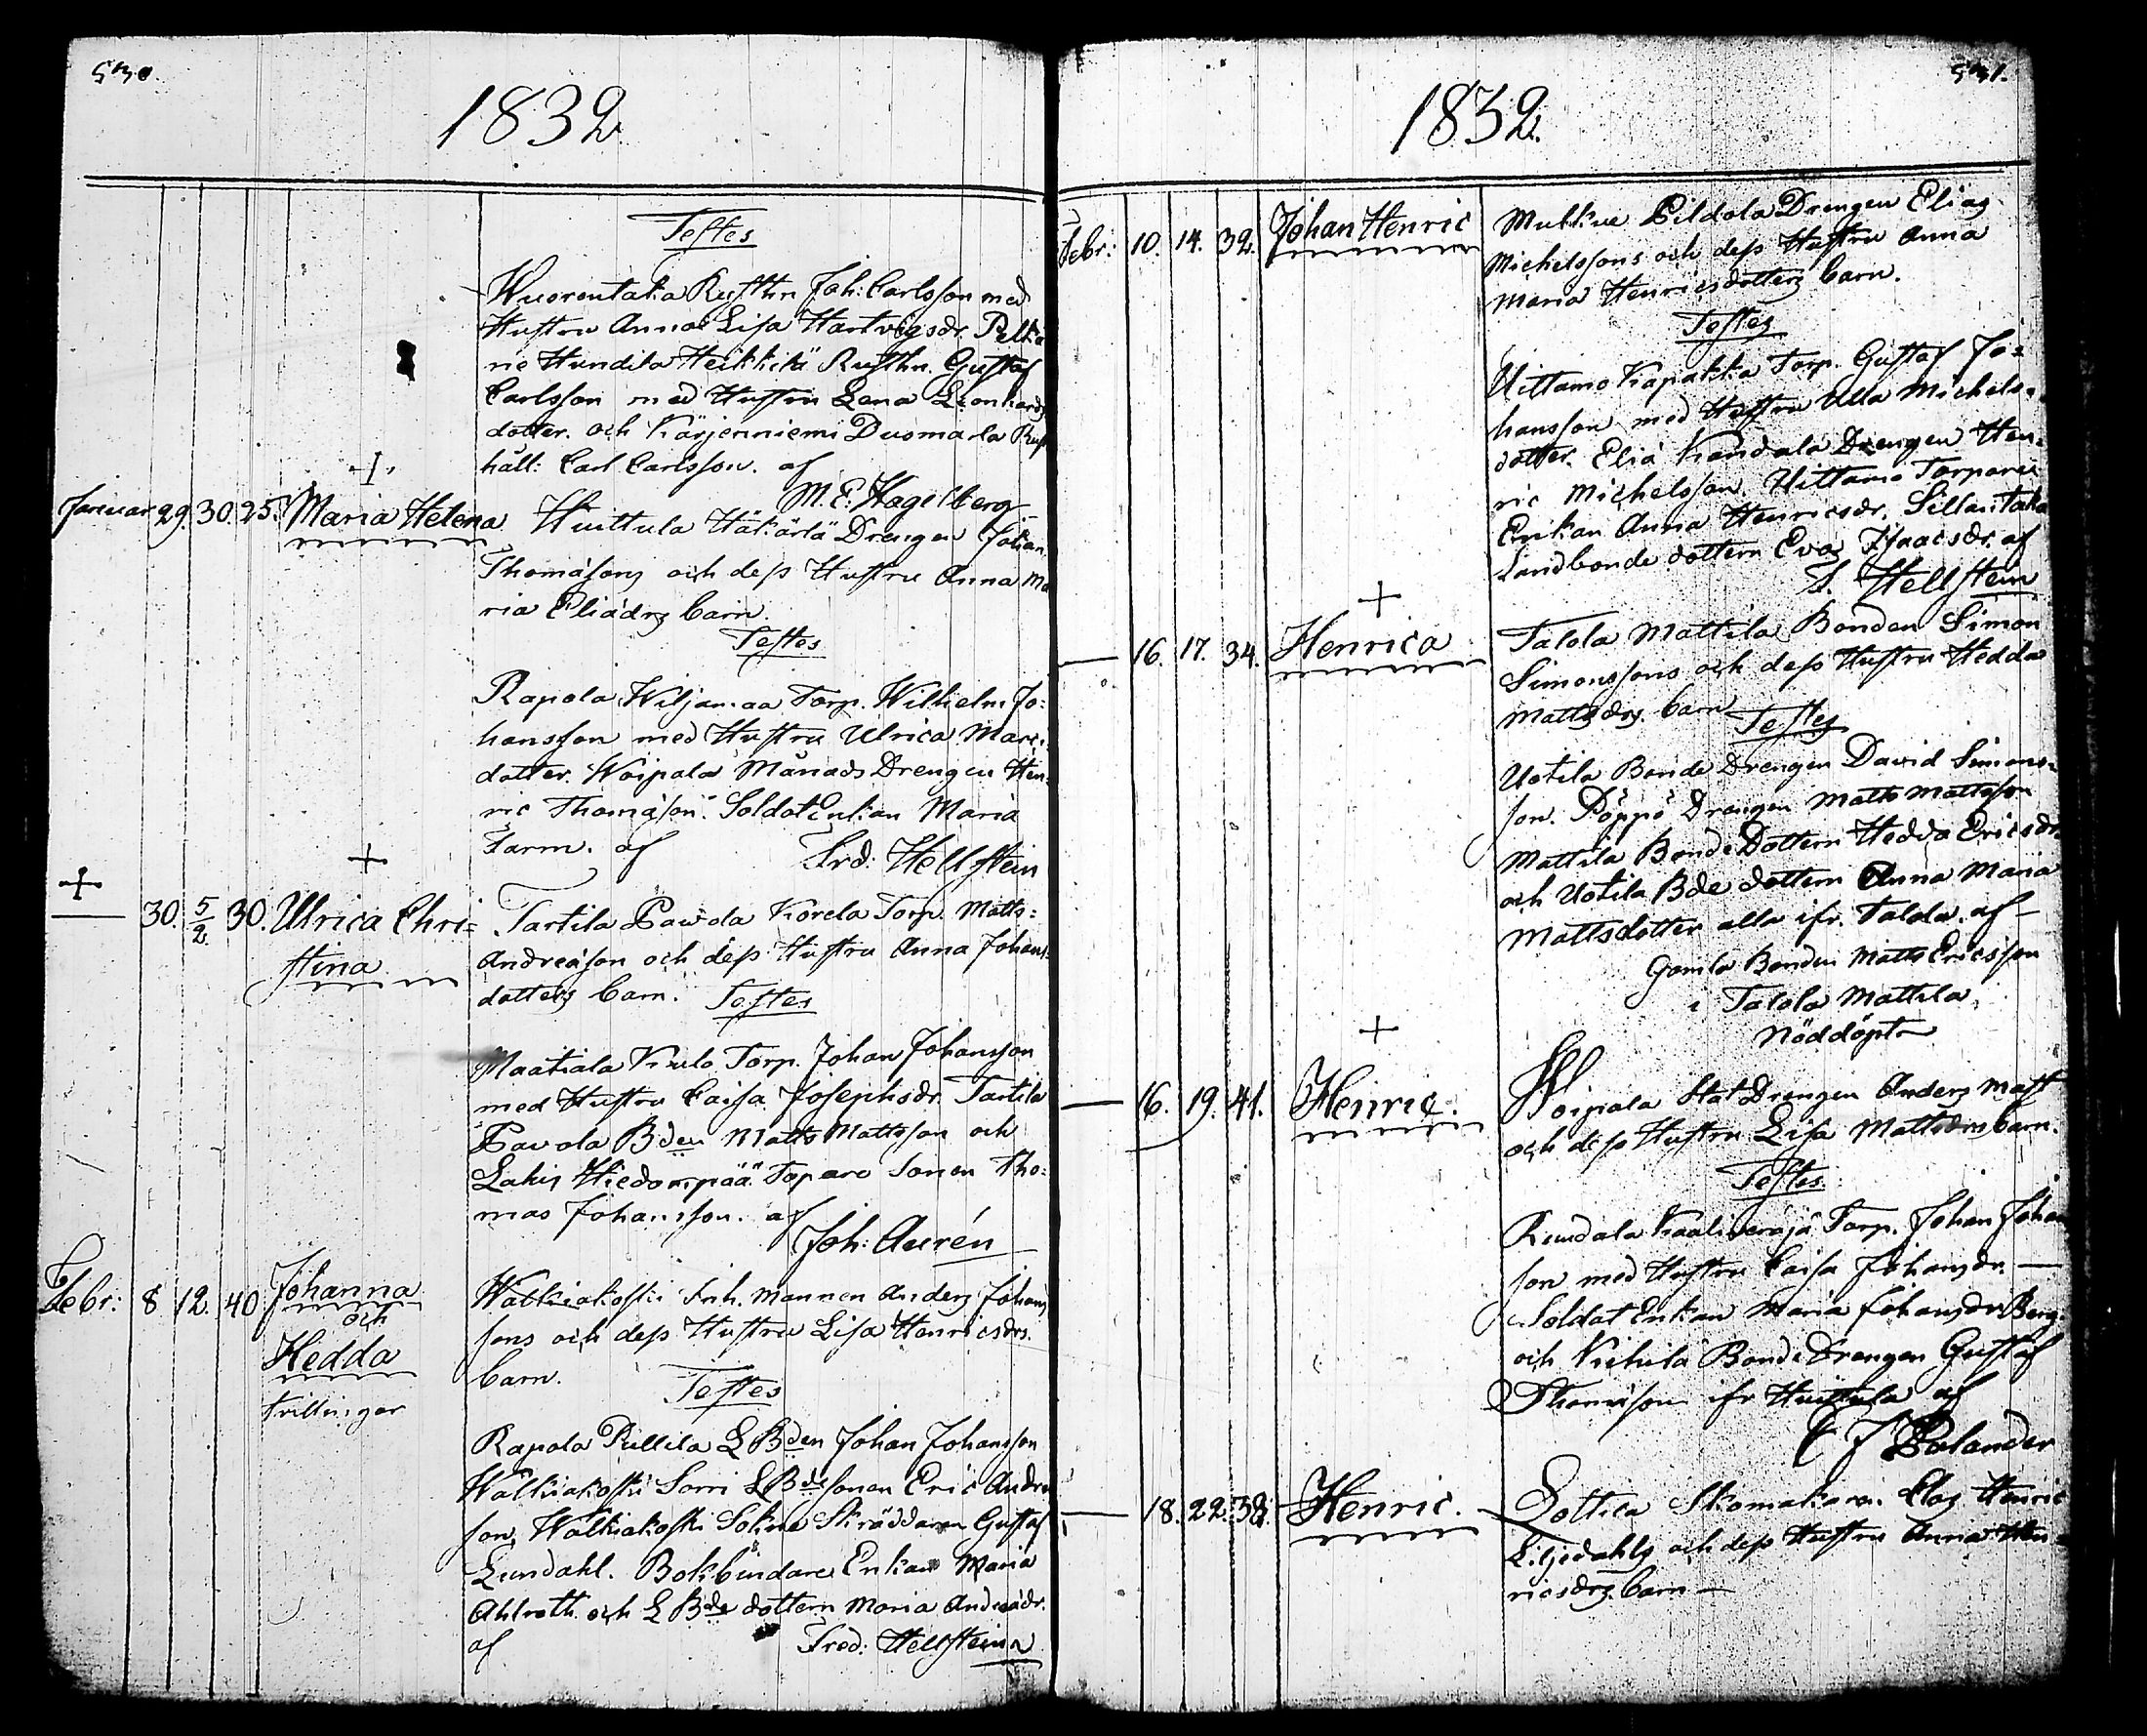 530.
1832.
Testes
Wuorentaka Rusthn Joh: Carlsson med
Hustru Anna Lisa Hartvigsdr. Pelkä
ne Hundila Heikkilä Rusthn. Gustaf
Carlsson med Hustru Lena Leonhards
dotter. och Kärjenniemi Duomarla Rust
håll: Carl Carlsson. af
M. E. Hagelberg
Januar. 29. 30. 25. Maria Helena. Huittula Häkärlä Drengen Johan
Thomasons och dess Hustru Anna Ma
ria Eliædrs barn.
Testes
Rapola Wiljamaa Torp. Wilhelm Jo=
hansson med Hustru Ulrica Marc:
dotter. Woipala Månads Drengen Hen=
ric Thomason. Soldat Enkan Maria
Farm. af Frd: Hellstein
30. 5/2 30. Ulrica Chri= Tartila Pawola Korela Torp. Matts=
stina Andreæson och dess Hustru Anna Johans=
dotters barn. Testes
Maatiala Kiulo Torp. Johan Johansson
med Hustru Caisa Josephsdr. Tartila
Pavola Bden Matts Mattsson och
Lahis Hiedompää Torpare Sonen Tho=
mas Johansson. af
Joh: Aurén
Febr: 8 12. 40 Johanna Walkiakoski Inh. mannen Anders Johans
och sons och dess Hustru Lisa Henricsdrs.
Hedda barn.
tvillingar Testes
Rapola Pullila L Bden Johan Johansson
Walkiakoski Sorri L Bde sonen Eric Andrs
son, Walkiakoski Sokne Skräddaren Gustaf
Lundahl. Bokbindare Enkan Maria
Ahlroth och L Bde dottern Maria Andreædr.
af Fred: Hellstein
531.
1832.
Febr: 10. 14. 32. Johan Henric Mukkue Pildola Drengen Elias
Michelssons och dess Hustru Anna
Maria Henricsdotters barn.
Testes
Uittamo Kapakka Torp. Gustaf Jo=
hansson med Hustru Ulla Michels=
dotter. Eliä Kandola Drengen Hen=
ric Michelsson. Uittamo Torpare
Enkan Anna Henricsdr. Sillantaka
Landbonde dottern Eva Isaacsdr. af
F. Hellstein
16. 17. 34. Henrica Talola Mattila Bonden Simon
Simonssons och dess Hustru Hedda
Mattsdrs. barn
Testes
Uotila Bonde Drengen David Simons=
son. Pöppö Drengen Matts Mattsson
Mattila Bonde Dottern Hedda Ericsdr.
och Uotila Bde dottern Anna Maria
Mattsdotter alla ifr. Talola. af
Gamla Bonden Matts Ericsson
i Talola Mattila
Nöddöpt
16. 19. 41. Henric. Woipala Stat Drengen Anders Matts
och dess Hustru Lisa Mattsdrs barn.
Testes
Rundala Kaaliseroja Torp. Johan Johan
son med Hustru Caisa Johansdr. —
Soldat Enkan Maria Johansdr Berg.
och Kiehula Bonde Drengen Gustaf
Thomason ifr Huittula af
C J Palander
18. 22. 38. Henric. Sottica Skomakaren Clas Henric
Liljedahls och dess Hustru Anna Hen=
ricsdrs. barn —